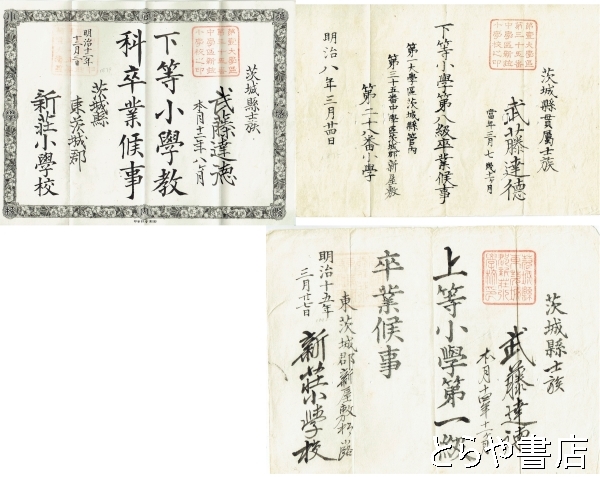 茨城縣士族
武藤達德
本月十二年八ヶ月
下等小學教
科卒業候事
茨城縣
東茨城郡
新莊小學校
明治十二年
十二月
茨城縣貫屬士族
武藤達德
當年三月七歳
下等小學第八級卒業候事
第一大學區茨城縣管内
第三十五番中學區茨城郡新屋敷
第二十八番小學
明治八年三月廿四日
茨城縣士族
武藤達德
本月十四年十一ヶ月
上等小學第一級
卒業候事
東茨城郡新屋敷
新莊小學校
明治十五年
三月廿七日
とらや書店